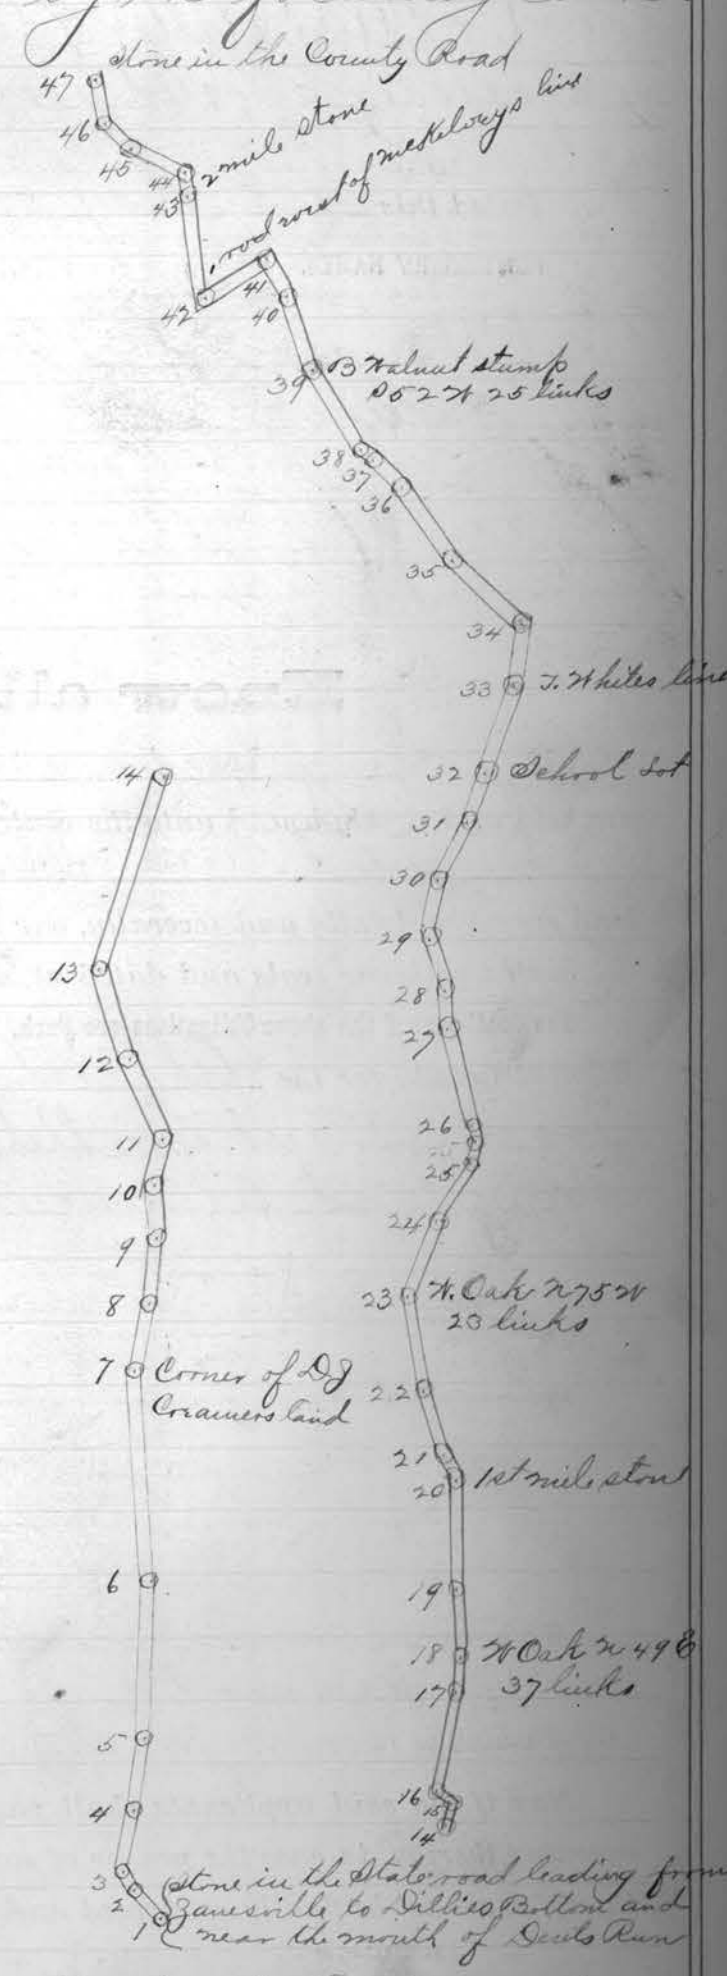 stone in the County Road
47
46
45
44
2 mile stone
43
1 rod west of McKelveys line
42
41
40
39 B Walnut stump
S 52 W 25 links
38
37
36
35
34
33 T. Whites line
32 School Lot
31
30
29
28
27
26
25
24
23 W. Oak N 75 W
23 links
22
21
20 1st mile stone
19
18 W Oak N 49 E
37 links
17
16
15
14
14
13
12
11
10
9
8
7 Corner of D J
Creamers land
6
5
4
3
2
1
stone in the State road leading from
Zanesville to Dillies Bottom and
near the mouth of Devils Run